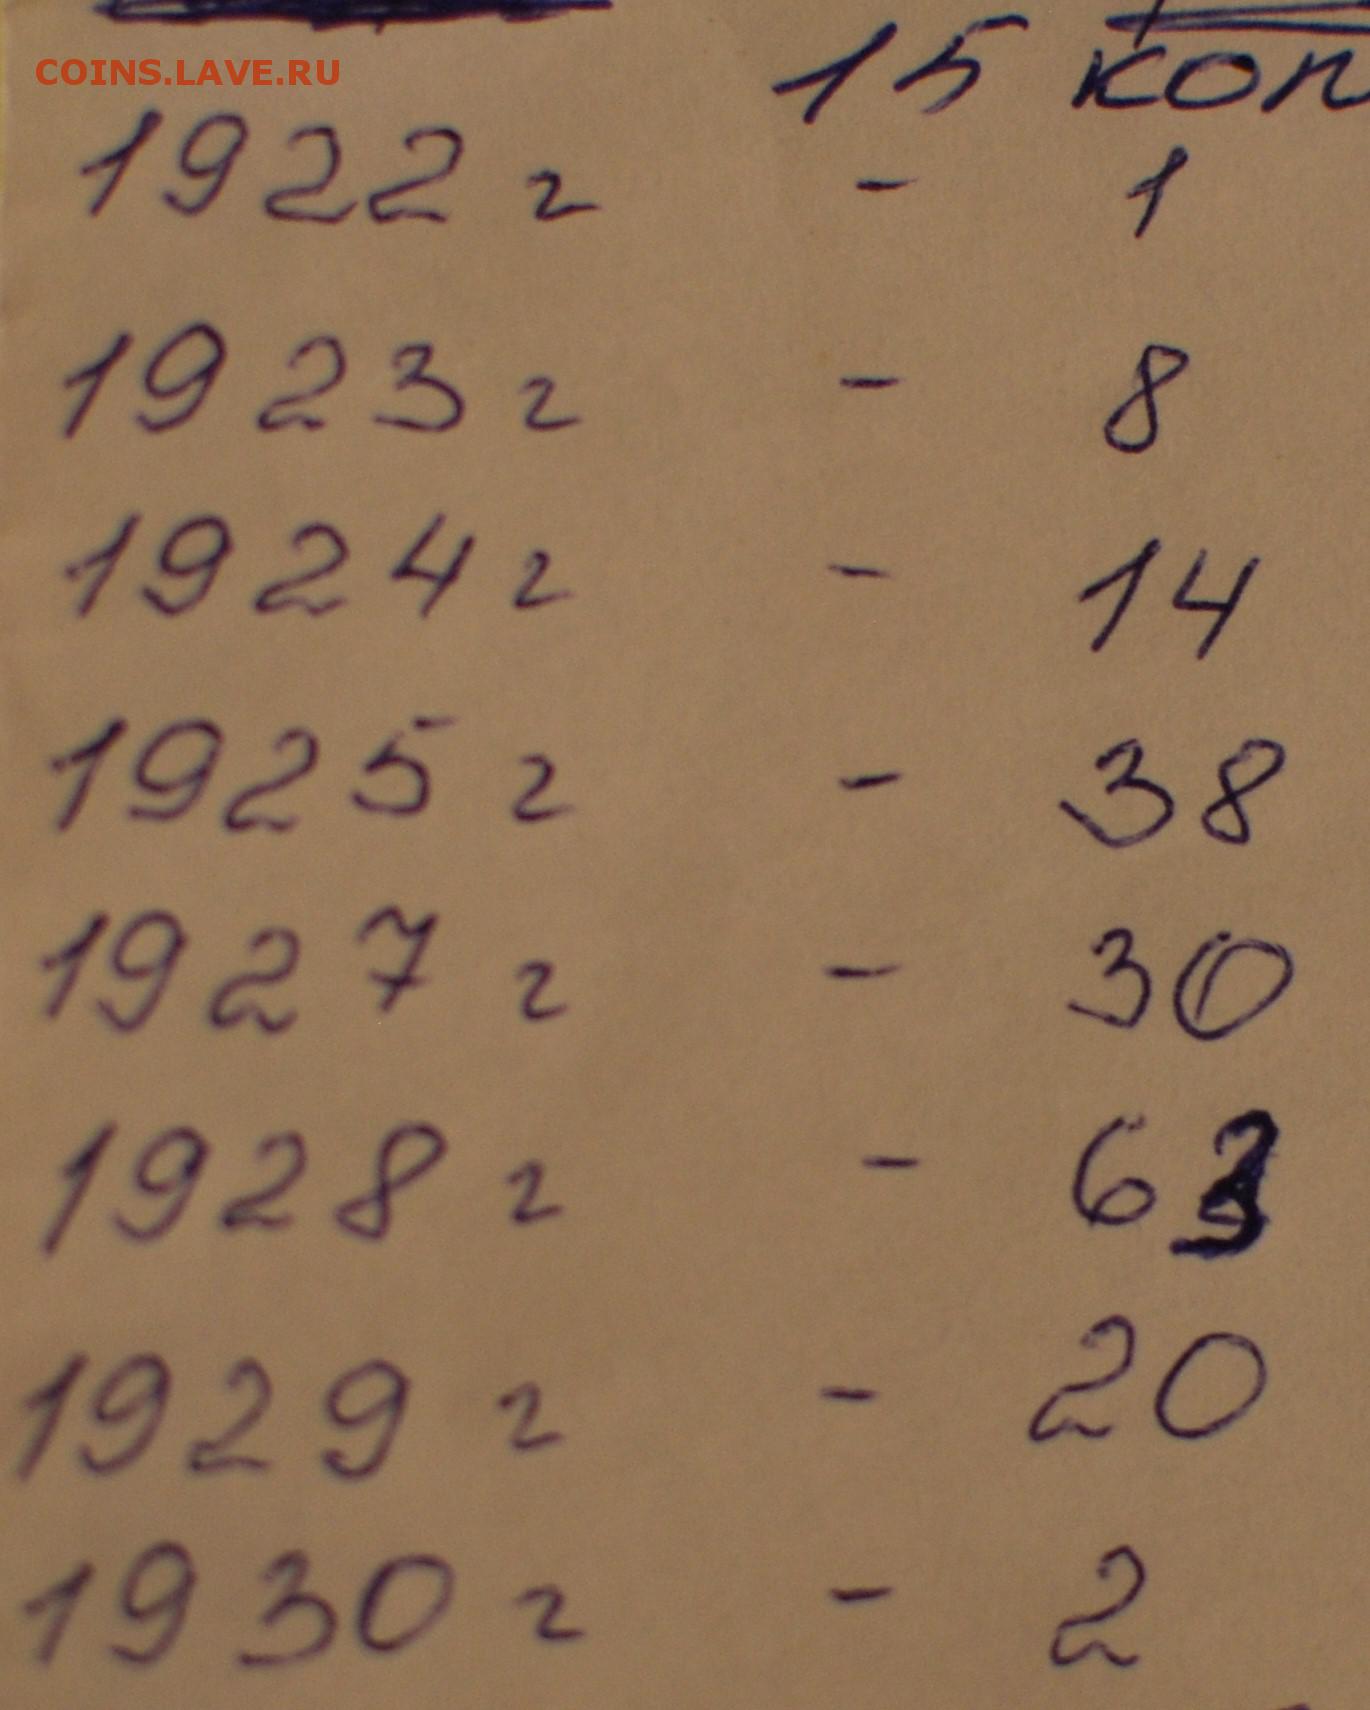 COINS.LAVE.RU
15 коп
1922 г - 1
1923 г - 8
1924 г - 14
1925 г - 38
1927 г - 30
1928 г - 63
1929 г - 20
1930 г - 2